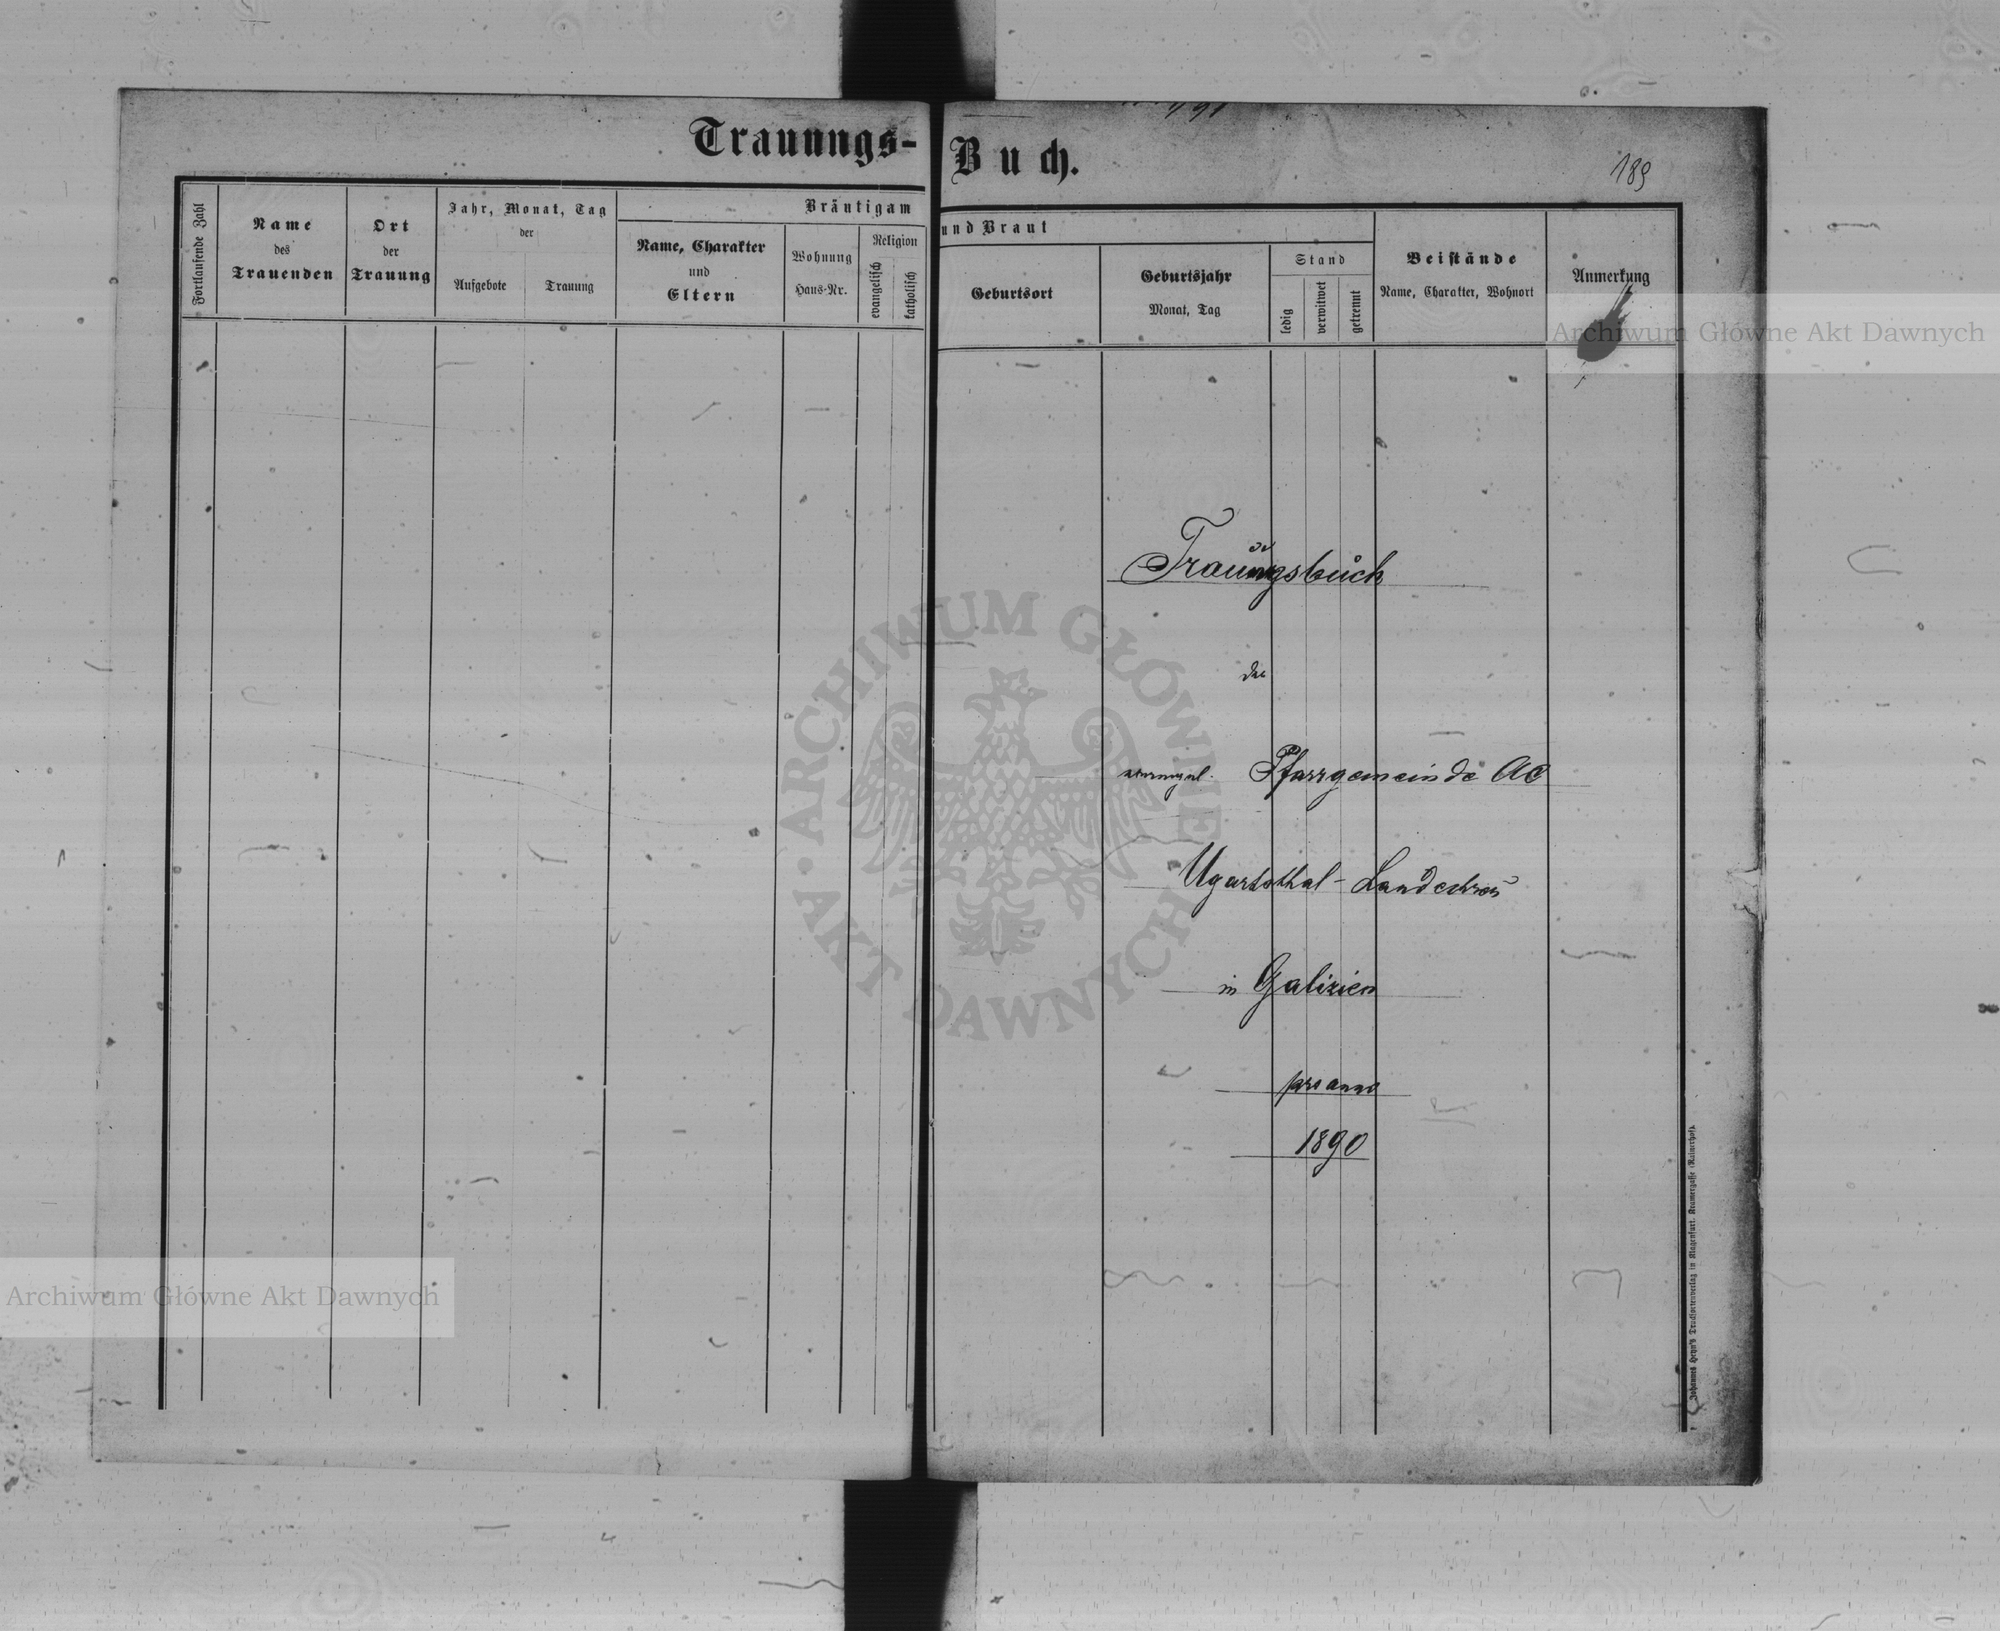 Trauungs-Buch.
189
Fortlaufende Zahl
Name
des
Trauenden
Ort
der
Trauung
Jahr, Monat, Tag
der
Aufgebote
Trauung
Bräutigam und Braut
Name, Charakter
und
Eltern
Wohnung
Haus-Nr.
Religion
evangelisch
katholisch
Geburtsort
Geburtsjahr
Monat, Tag
Stand
ledig
verwitwet
getrennt
Beistände
Name, Charakter, Wohnort
Anmerkung
Archiwum Główne Akt Dawnych
Trauungsbuch
der
evangel. Pfarrgemeinde AC
Ugartsthal-Landestreu
in Galizien
pro anno
1890
ARCHIWUM GŁÓWNE · AKT DAWNYCH ·
Archiwum Główne Akt Dawnych
Johannes Heyn's Drucksortenverlag in Klagenfurt, Kramergasse (Rainerhof).